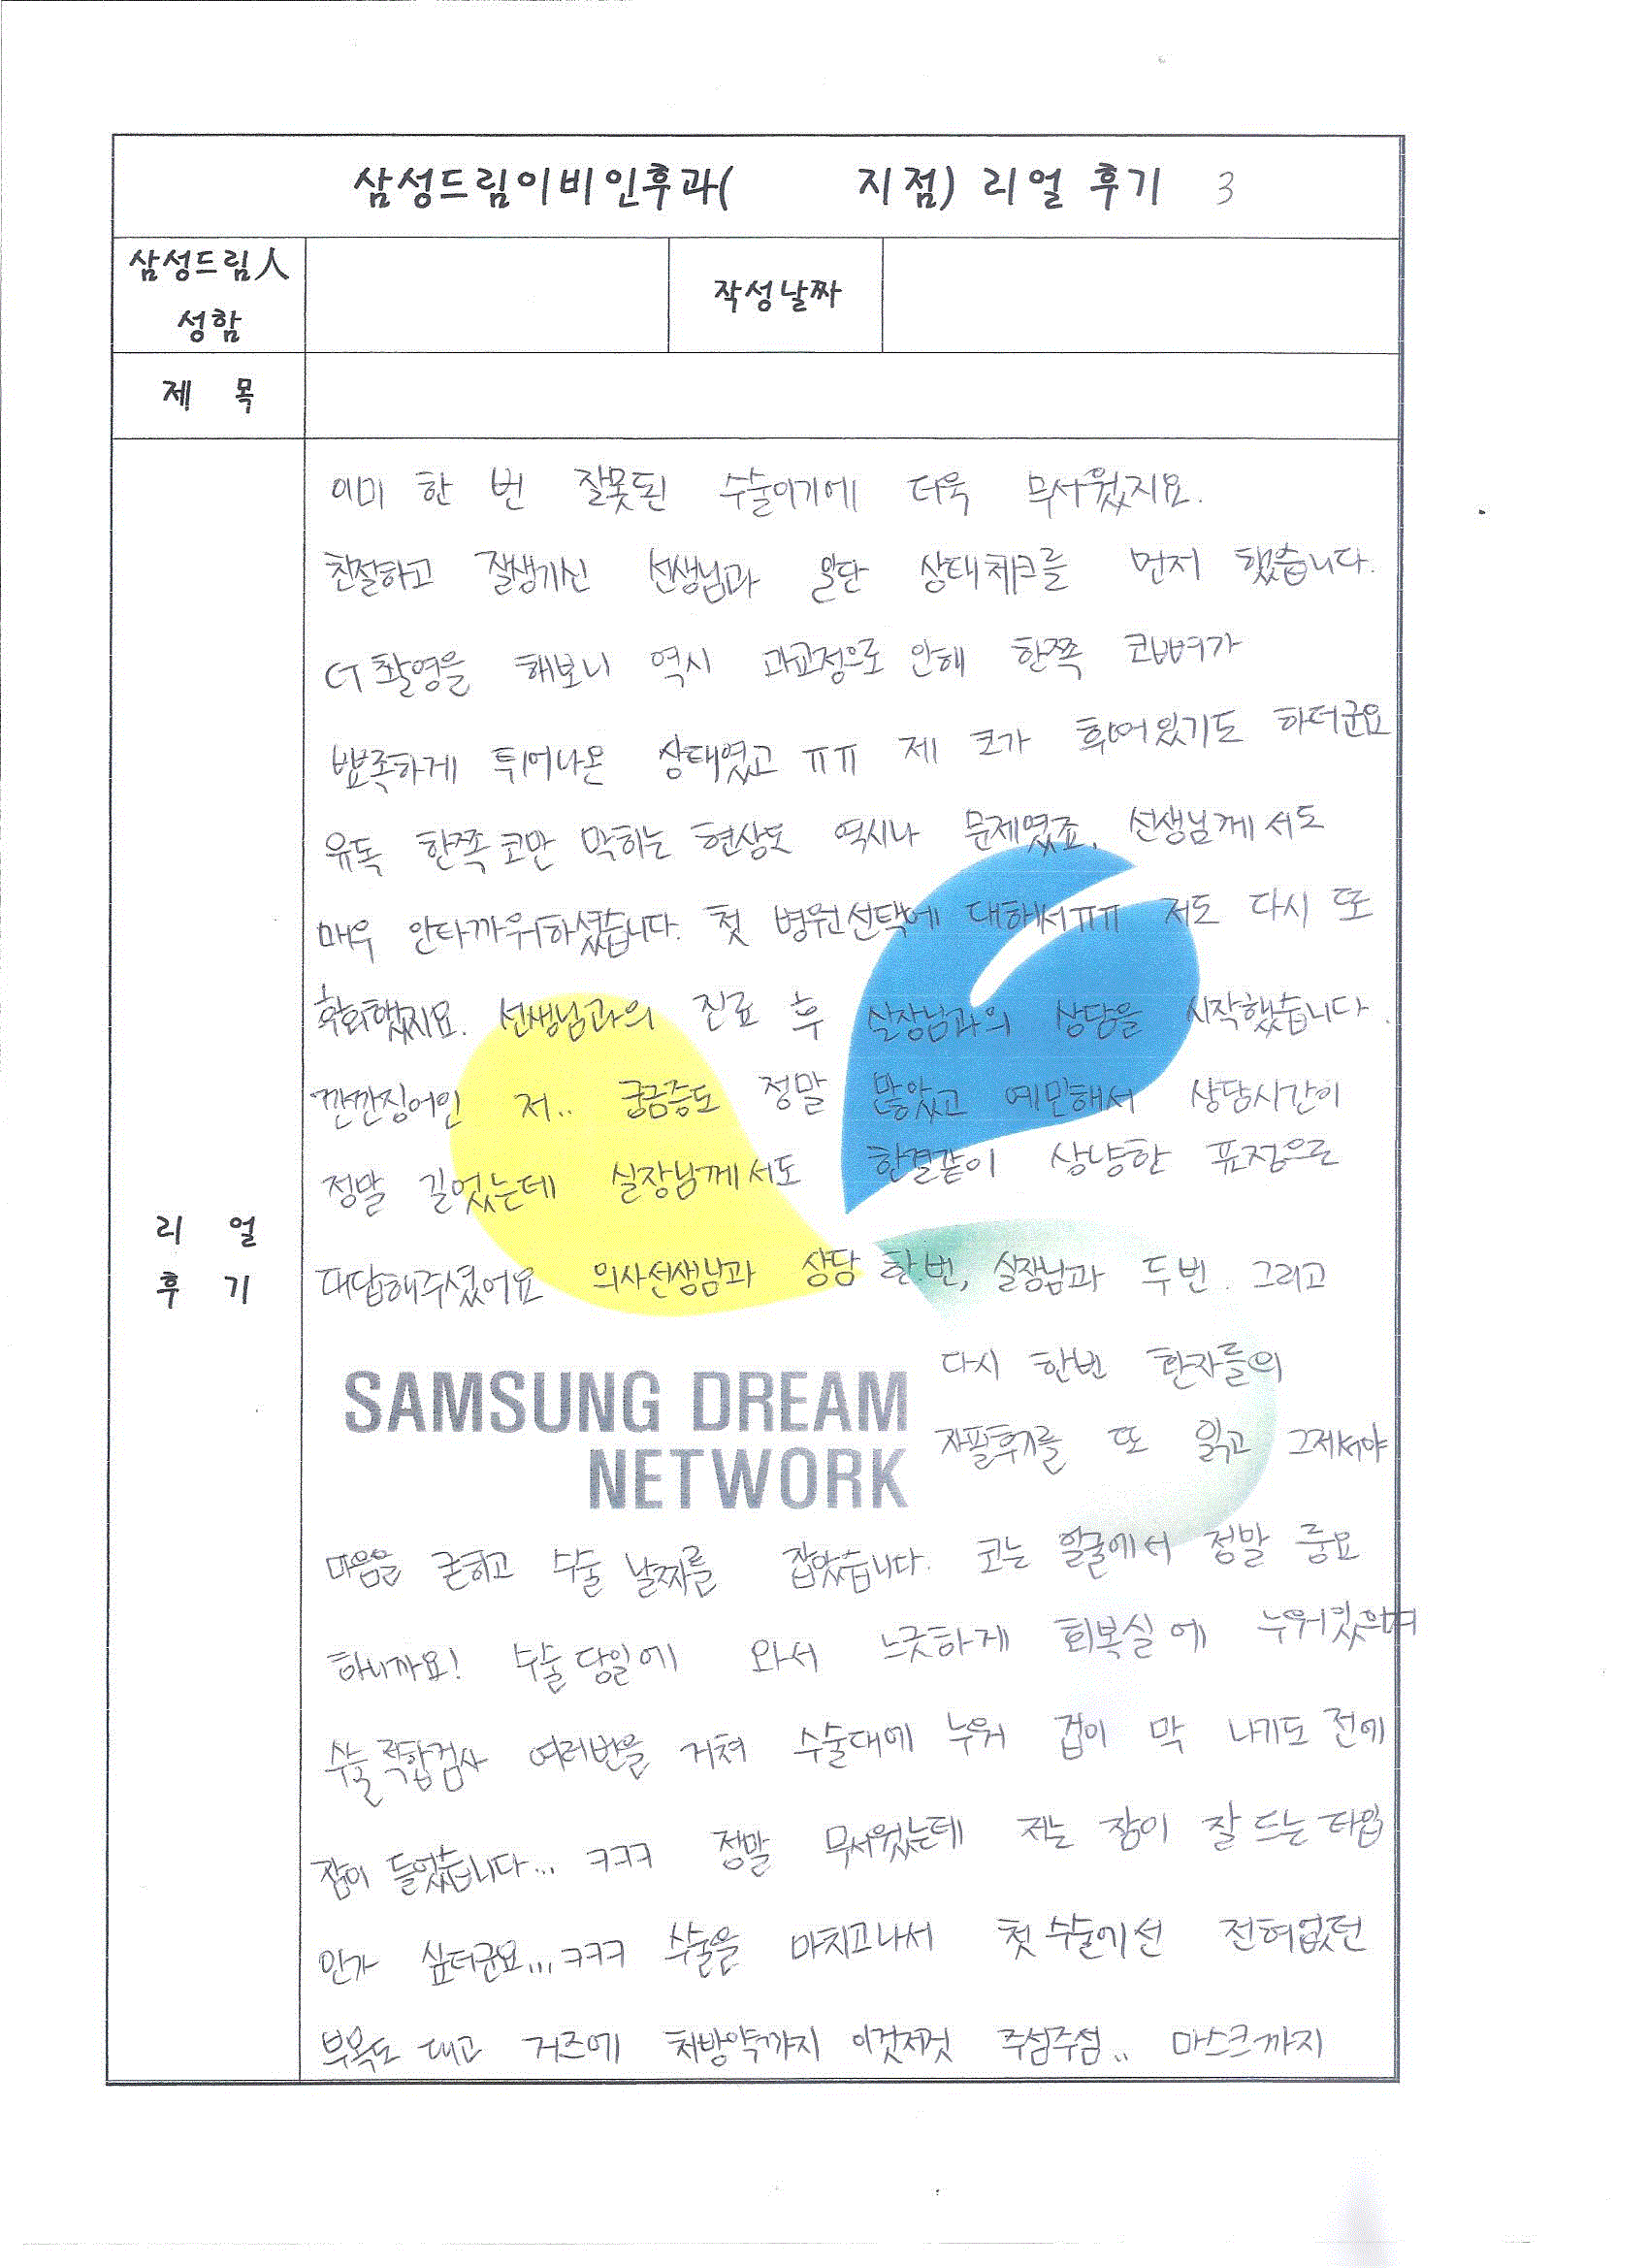 삼성드림이비인후과(          지점) 리얼 후기 3
삼성드림人
성함
작성날짜
제 목
이미 한 번 잘못된 수술이기에 더욱 무서웠지요.
친절하고 잘생기신 선생님과 일단 상태체크를 먼저 했습니다.
CT촬영을 해보니 역시 과교정으로 인해 한쪽 코뼈가
뾰족하게 튀어나온 상태였고 ㅠㅠ 제 코가 휘어있기도 하더군요
유독 한쪽 코만 막히는 현상도 역시나 문제였죠. 선생님께서도
매우 안타까워하셨습니다. 첫 병원선택에 대해서ㅠㅠ 저도 다시 또
후회했지요. 선생님과의 진료 후 실장님과의 상담을 시작했습니다.
깐깐징어인 저.. 궁금증도 정말 많았고 예민해서 상담시간이
정말 길었는데 실장님께서도 한결같이 상냥한 표정으로
대답해주셨어요 의사선생님과 상담 한번, 실장님과 두번. 그리고
다시 한번 환자들의
자필후기를 또 읽고 그제서야
마음을 굳히고 수술 날짜를 잡았습니다. 코는 얼굴에서 정말 중요
하니까요! 수술 당일에 와서 느긋하게 회복실에 누워있으며
수술적합검사 여러번을 거쳐 수술대에 누워 겁이 막 나기도 전에
잠이 들었습니다... ㅋㅋㅋ 정말 무서웠는데 저는 잠이 잘 드는 타입
인가 싶더군요... ㅋㅋㅋ 수술을 마치고나서 첫 수술에선 전혀없던
부목도 대고 거즈에 처방약까지 이것저것 주섬주섬.. 마스크까지
리 얼
후 기
SAMSUNG DREAM
NETWORK